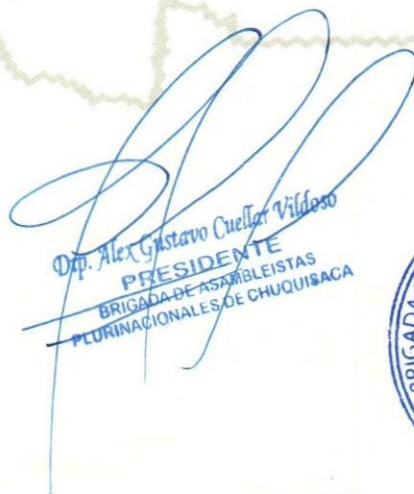 Dip. Alex Gustavo Cuellar Vildoso
PRESIDENTE
BRIGADA DE ASAMBLEISTAS
PLURINACIONALES DE CHUQUISACA
BRIGADA